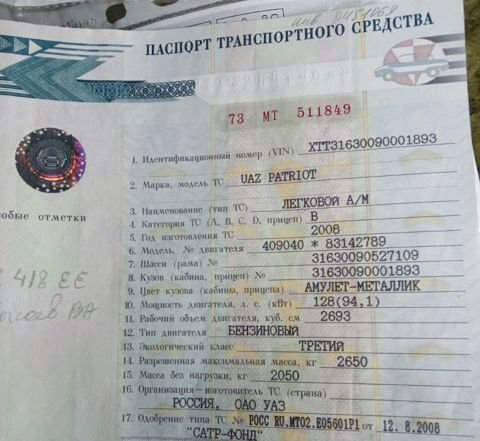 инв 0451069
ПАСПОРТ ТРАНСПОРТНОГО СРЕДСТВА
73 МТ 511849
1. Идентификационный номер (VIN) XTT31630090001893
2. Марка, модель ТС UAZ PATRIOT
3. Наименование (тип ТС) ЛЕГКОВОЙ А/М
4. Категория ТС (А, В, С, D, прицеп) В
5. Год изготовления ТС 2008
6. Модель, № двигателя 409040 * 83142789
7. Шасси (рама) № 31630090527109
8. Кузов (кабина, прицеп) № 31630090001893
9. Цвет кузова (кабины, прицепа) АМУЛЕТ-МЕТАЛЛИК
10. Мощность двигателя, л. с. (кВт) 128(94,1)
11. Рабочий объем двигателя, куб. см 2693
12. Тип двигателя БЕНЗИНОВЫЙ
13. Экологический класс ТРЕТИЙ
14. Разрешенная максимальная масса, кг 2650
15. Масса без нагрузки, кг 2050
16. Организация-изготовитель ТС (страна)
РОССИЯ, ОАО УАЗ
17. Одобрение типа ТС № РОСС RU.МТ02.Е05601Р1 от 12.8.2008
"САТР-ФОНД"
обые отметки
418 ЕЕ
ВА